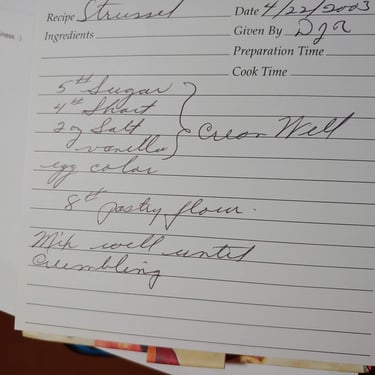 iness. :)
Recipe Strussel Date 4/22/2003
Ingredients Given By DJR
Preparation Time
Cook Time
5# Sugar
4# Short
2oz Salt
vanilla
Cream Well
egg color
8# pastry flour.
Mix well until
Crumbling